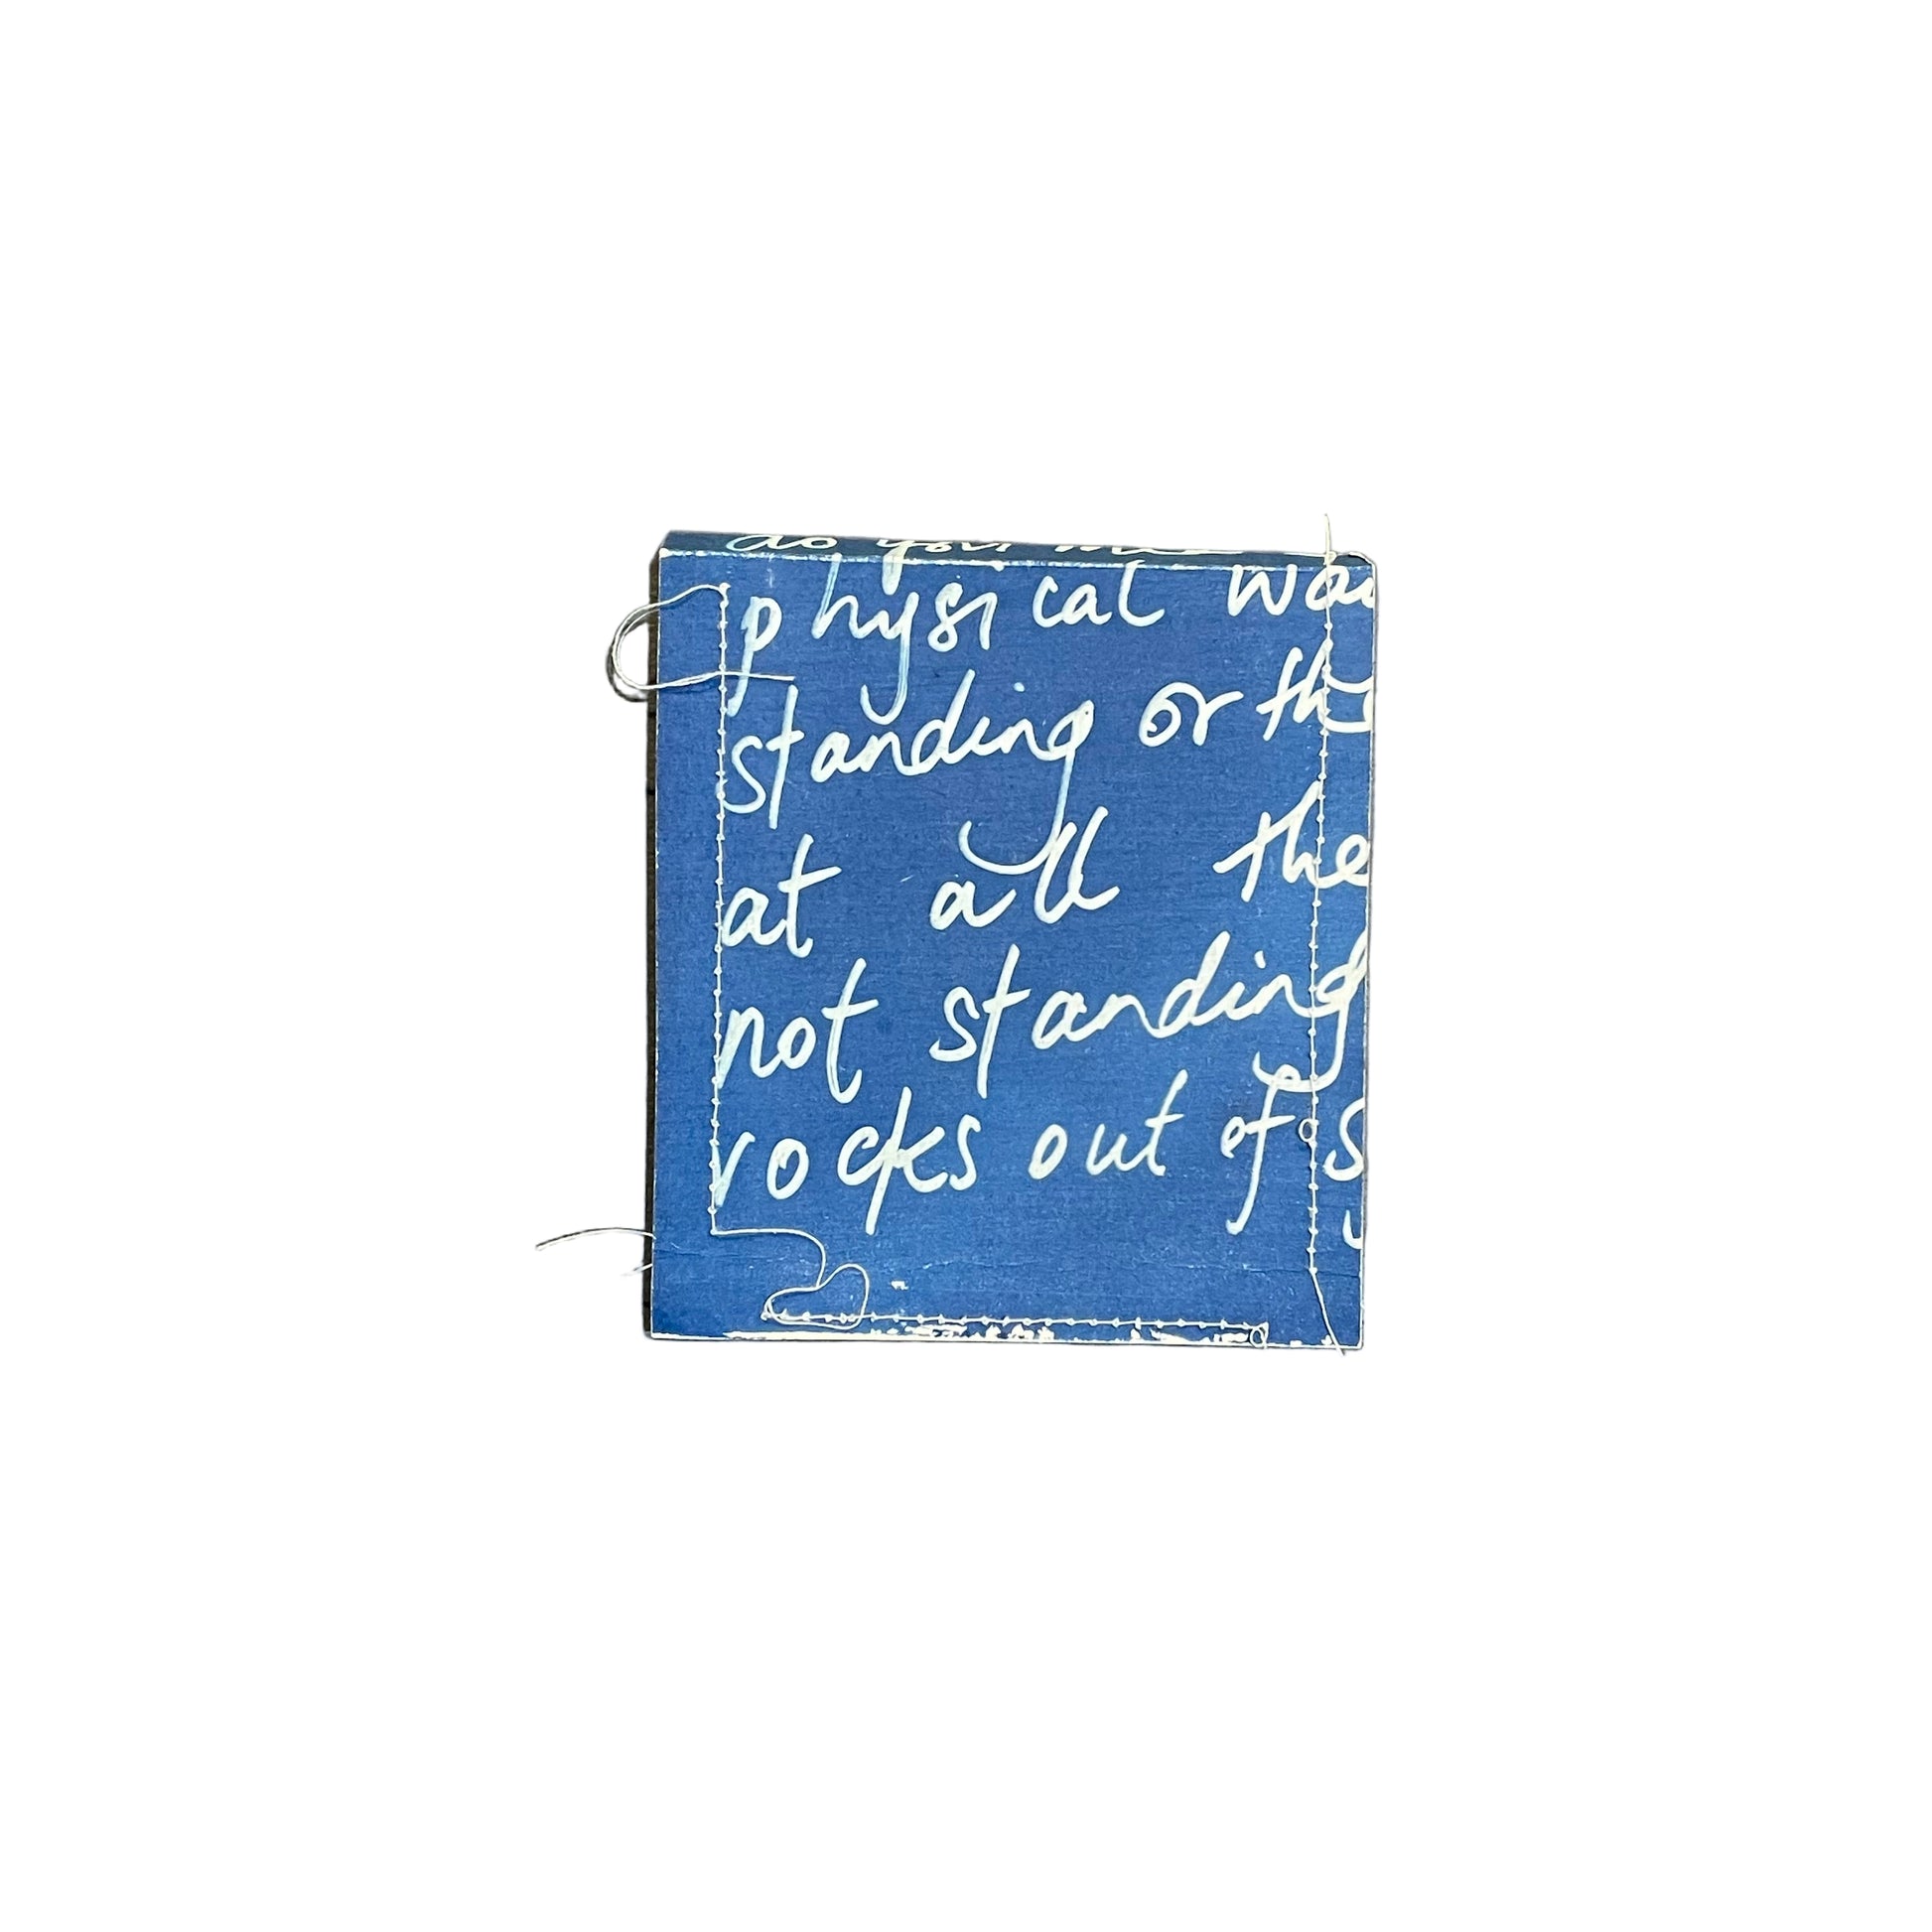 do you
physical
standing or
at all the
not standing
rocks out of